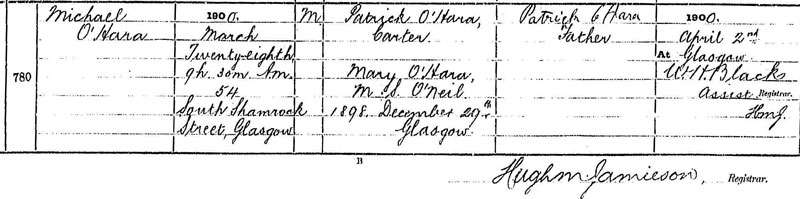 780
Michael
O'Hara
1900.
March
Twenty-eighth
9h. 30m. A.m.
54
South Shamrock
Street, Glasgow
M.
Patrick O'Hara,
Carter.
Mary O'Hara,
M. S. O'Neil
1898. December 29th
Glasgow
Patrick O'Hara
Father
1900.
April 2nd
At Glasgow
Assist Registrar.
HmJ.
B
Hugh m. Jamieson, Registrar.